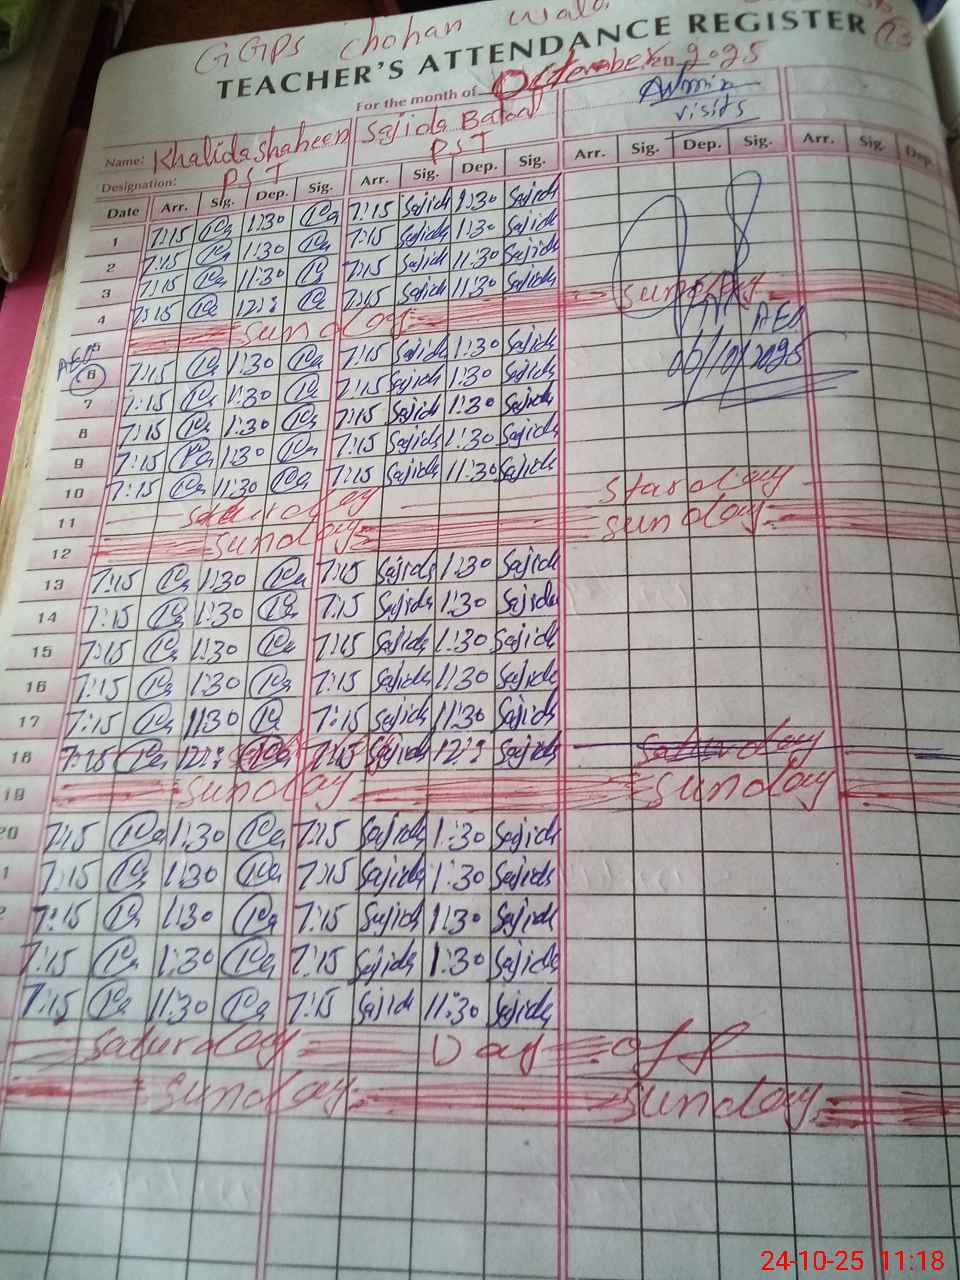 GGPS chohan wala
TEACHER'S ATTENDANCE REGISTER 13
For the month of October 2025
Name: Khalida shaheen Sajida Batool Admin visits
Designation: PST PST
Date Arr. Sig. Dep. Sig. Arr. Sig. Dep. Sig. Arr. Sig. Dep. Sig. Arr. Sig. Dep.
1 7:15 1:30 7:15 Sajida 1:30 Sajida
2 7:15 1:30 7:15 Sajida 1:30 Sajida
3 7:15 11:30 7:15 Sajida 11:30 Sajida
4 7:15 7:15 Sajida 11:30 Sajida
5 sunday sunday
AEO
6 7:15 1:30 7:15 Sajida 1:30 Sajida AEO
06/10/2025
7 7:15 1:30 7:15 Sajida 1:30 Sajida
8 7:15 1:30 7:15 Sajida 1:30 Sajida
9 7:15 1:30 7:15 Sajida 1:30 Sajida
10 7:15 11:30 7:15 Sajida 11:30 Sajida
11 saturday starday
12 sunday sunday
13 7:15 1:30 7:15 Sajida 1:30 Sajida
14 7:15 1:30 7:15 Sajida 1:30 Sajida
15 7:15 1:30 7:15 Sajida 1:30 Sajida
16 7:15 1:30 7:15 Sajida 1:30 Sajida
17 7:15 11:30 7:15 Sajida 11:30 Sajida
18 7:15 7:15 Sajida Sajida saturday
19 sunday sunday
20 7:15 1:30 7:15 Sajida 1:30 Sajida
1 7:15 1:30 7:15 Sajida 1:30 Sajida
2 7:15 1:30 7:15 Sajida 1:30 Sajida
7:15 1:30 7:15 Sajida 1:30 Sajida
7:15 11:30 7:15 Sajida 11:30 Sajida
saturday Day off
sunday sunday
24-10-25 11:18